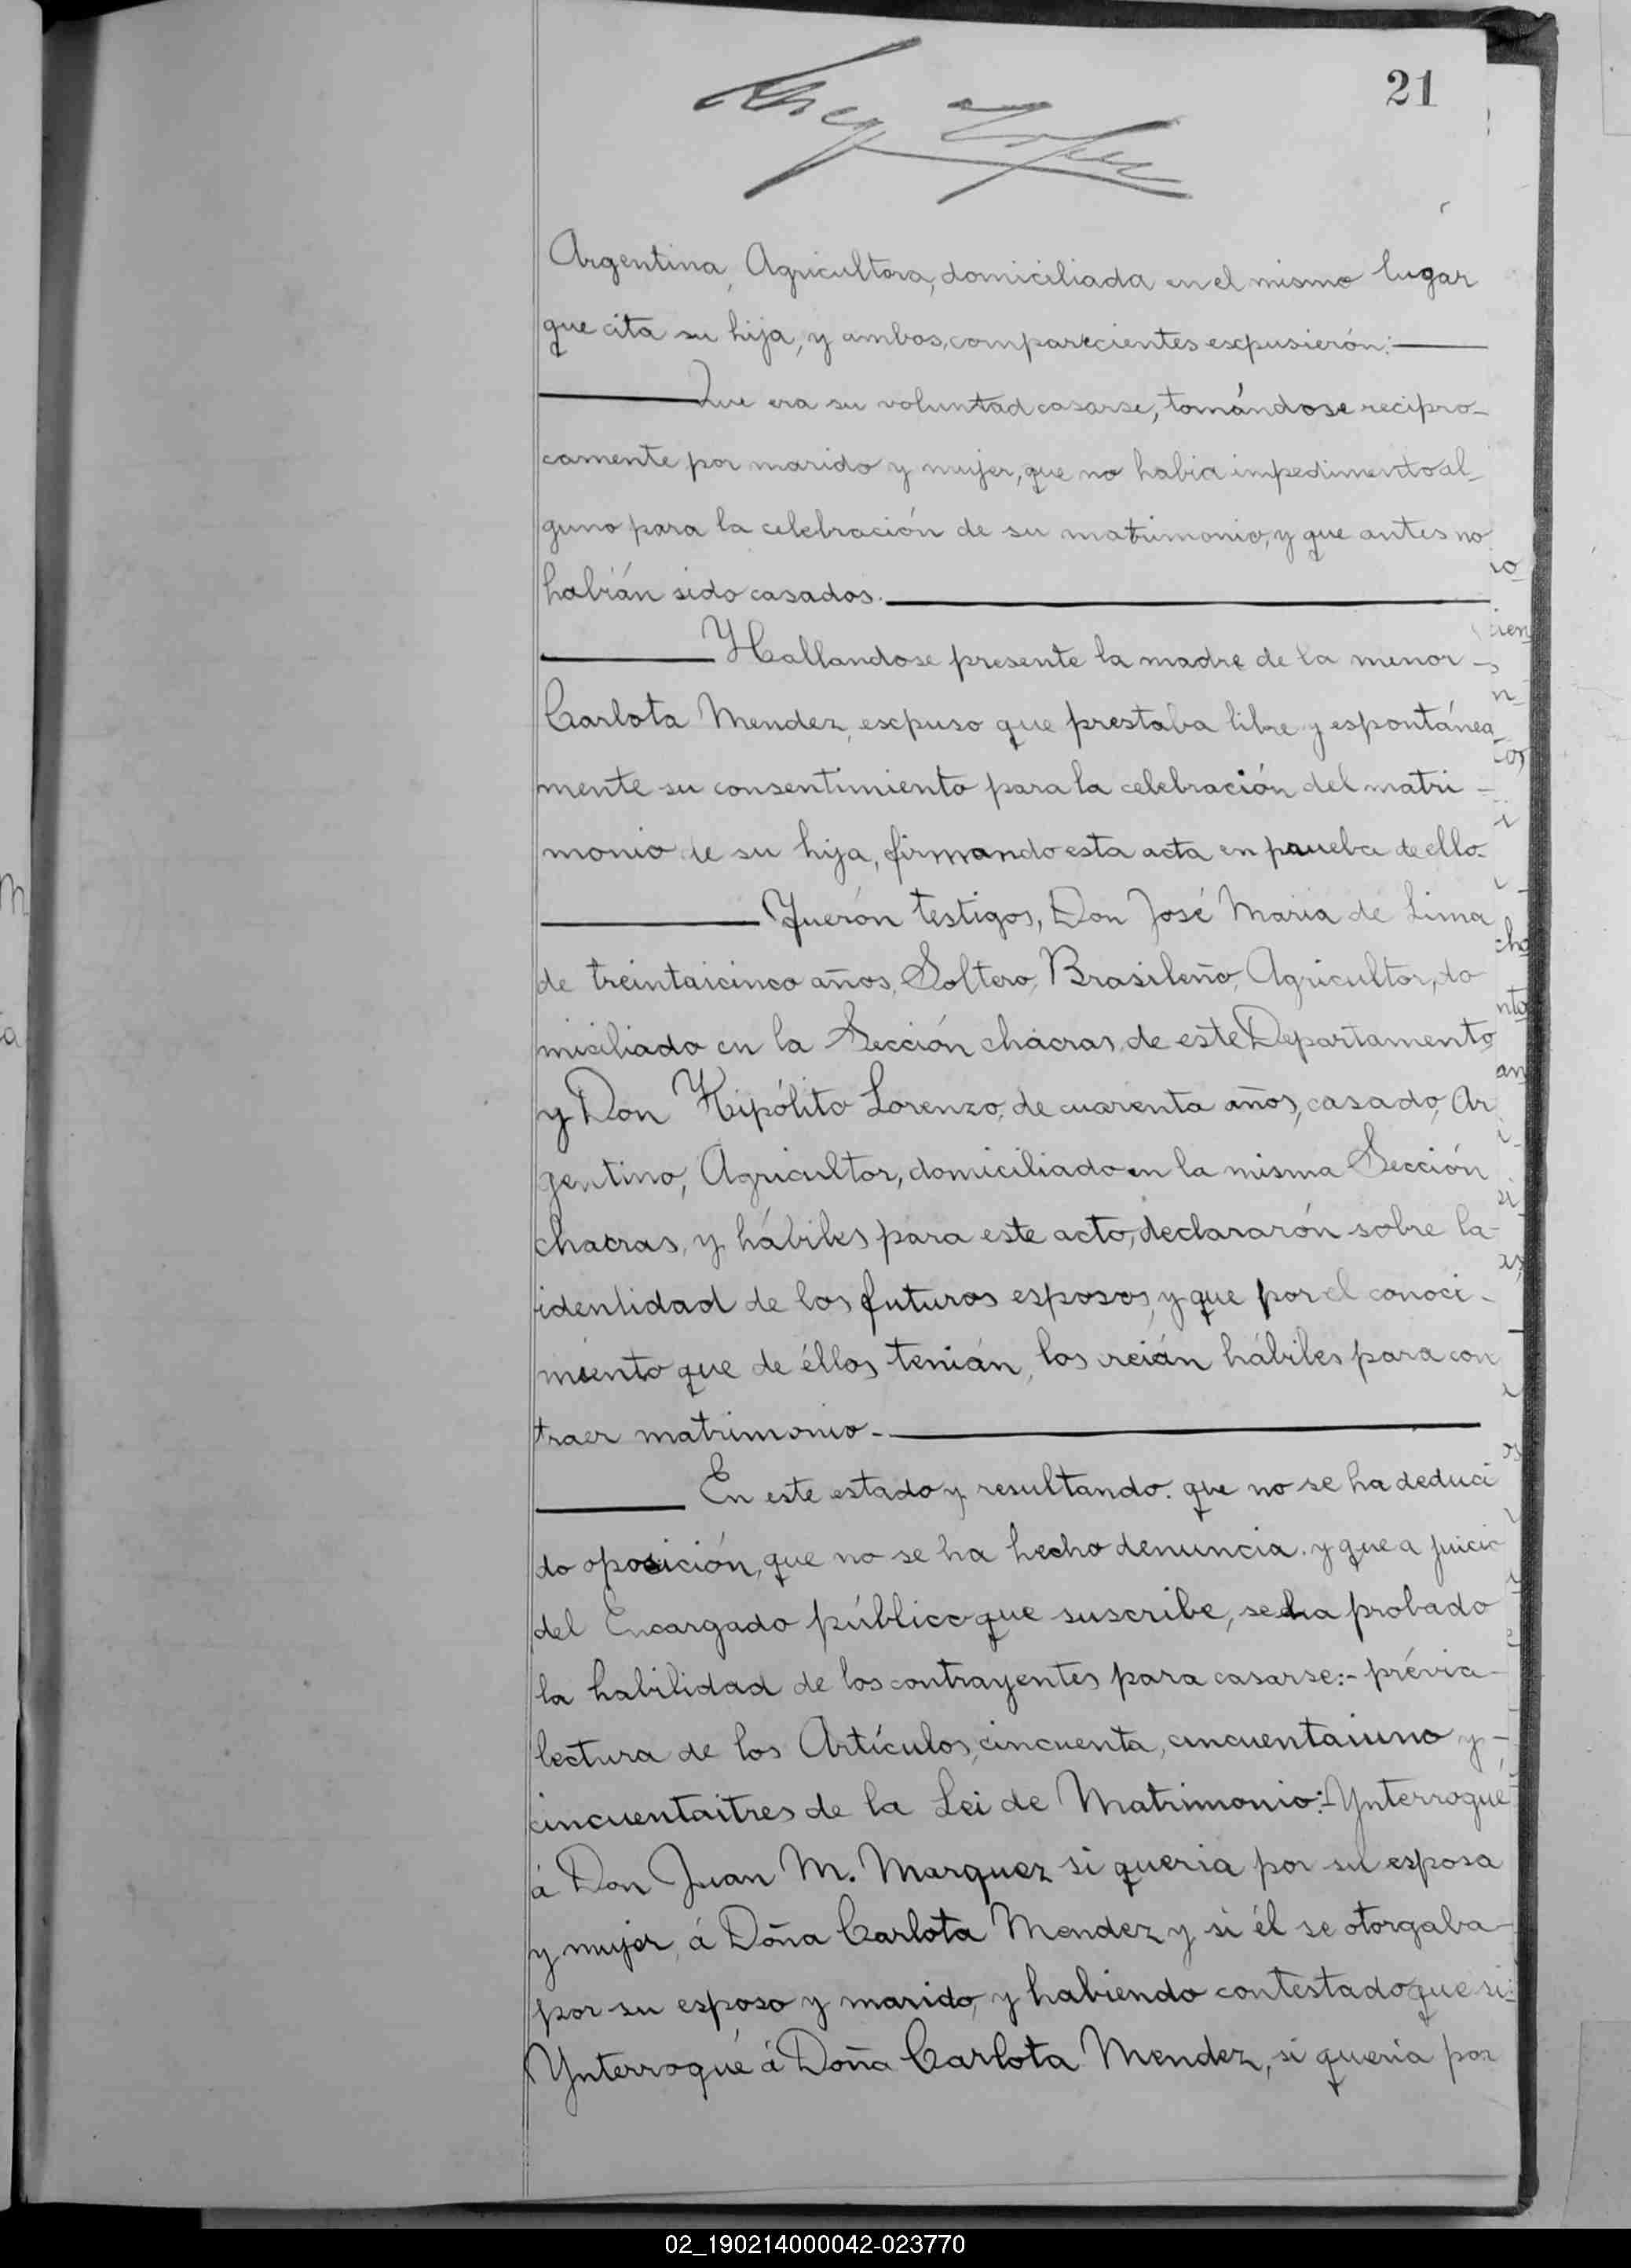 21
Argentina, Agricultora, domiciliada en el mismo lugar
que cita su hija, y ambos, comparecientes escpusierón:
Que era su voluntad casarse, tomándose recipro-
camente por marido y mujer, que no habia impedimento al-
guno para la celebración de su matrimonio, y que antes no
habián sido casados.
Y Hallandose presente la madre de la menor -
Carlota Mendez, escpuso que prestaba libre y espontánea
mente su consentimiento para la celebración del matri -
monio de su hija, firmando esta acta en prueba de ello.
Fuerón testigos, Don José Maria de Lima
de treintaicinco años, Soltero, Brasileño, Agricultor, do
miciliado en la Sección chacras, de este Departamento
y Don Hipólito Lorenzo, de cuarenta años, casado, Ar
gentino, Agricultor, domiciliado en la misma Sección
chacras, y hábiles para este acto, declararón sobre la-
identidad de los futuros esposos, y que por el conoci -
miento que de éllos tenián, los creián hábiles para con
traer matrimonio -
En este estado y resultando. que no se ha deduci
do oposición, que no se ha hecho denuncia. y que a juicio
del Encargado público que suscribe, se ha probado
la habilidad de los contrayentes para casarse:- prévia -
lectura de los Artículos, cincuenta, cincuentaiuno y -
cincuentaitres de la Lei de Matrimonio:- Ynterrogué
á Don Juan M. Marquez si queria por su esposa
y mujer, á Doña Carlota Mendez y si él se otorgaba -
por su esposo y marido, y habiendo contestado que si:-
Ynterrogué á Doña Carlota Mendez, si queria por
02_190214000042-023770